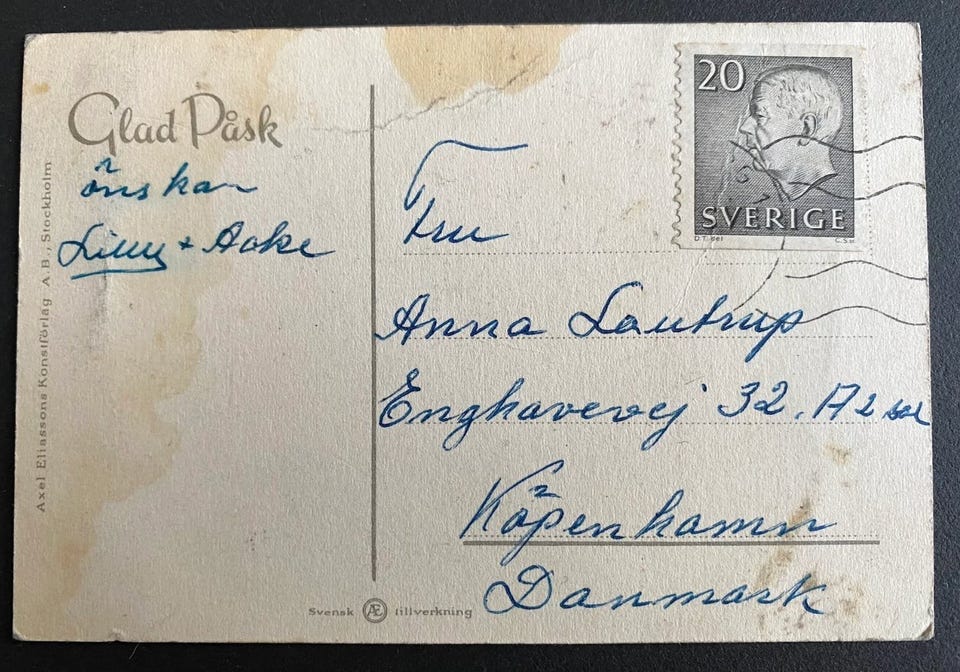 Glad Påsk
önskar
Lilly + Aoke
Axel Eliassons Konstförlag A.B., Stockholm
20
SVERIGE
D.T. del
C.S. sc
Fru
Anna Lautrup
Enghavevej 32. A 2 sal
Köpenhamn
Danmark
Svensk Æ tillverkning